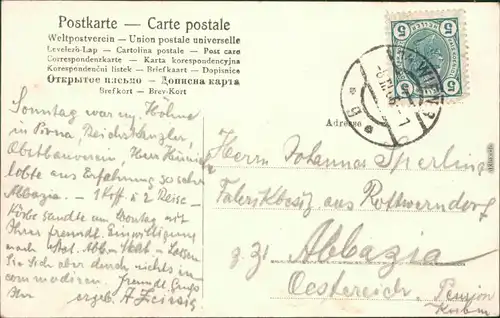 Postkarte — Carte postale
Weltpostverein — Union postale universelle
Levelező-Lap — Cartolina postale — Post care
Correspondenzkarte — Karta korespondencyjna
Korespondenční lístek — Briefkaart — Dopisnice
Открытое письмо — Дописна карта
Brefkort — Brev-Kort
5 HELLER 5
5 5
WIEN
Adresse
Sonntag war
in Pirna, Reichskanzler,
Obstbauverein, Herr Heinrich
lobte aus Erfahrung so sehr
Abbazia. — 1 Koff. & 2 Reise-
körbe sandte am Montag mit
Ihrer freundl. Einwilligung
nach Abb. Lassen
Sie Sich aber durch nichts in-
commodiren. Freundl. Gruss
Ihr ergeb. A
Herrn Johannes Sperling
Fabrikbesitz. aus Rottwerndorf
z. Zt. Abbazia
Oesterreich. Pension